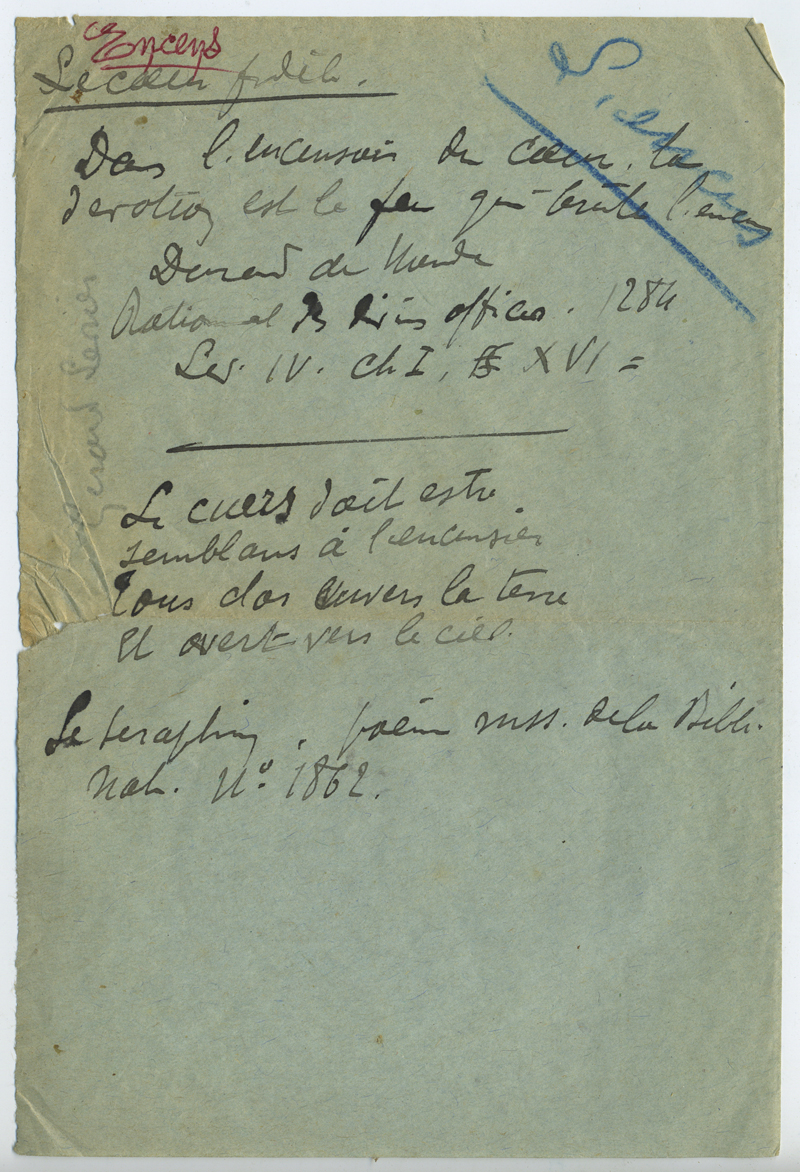 Encens
Le cœur fidèle.
L'encens
Dans l'encensoir du cœur, la
dévotion est le feu qui brûle l'encens
Durand de Mende
Rational des divins offices. 1284
Lev. IV. ch I, XVI =
Le cuers doit estre
semblans à l'encensier
Tous clos envers la terre
Et overt vers le ciel.
Le Seraphin, poème mss. de la Bibl.
Nat. N° 1862.